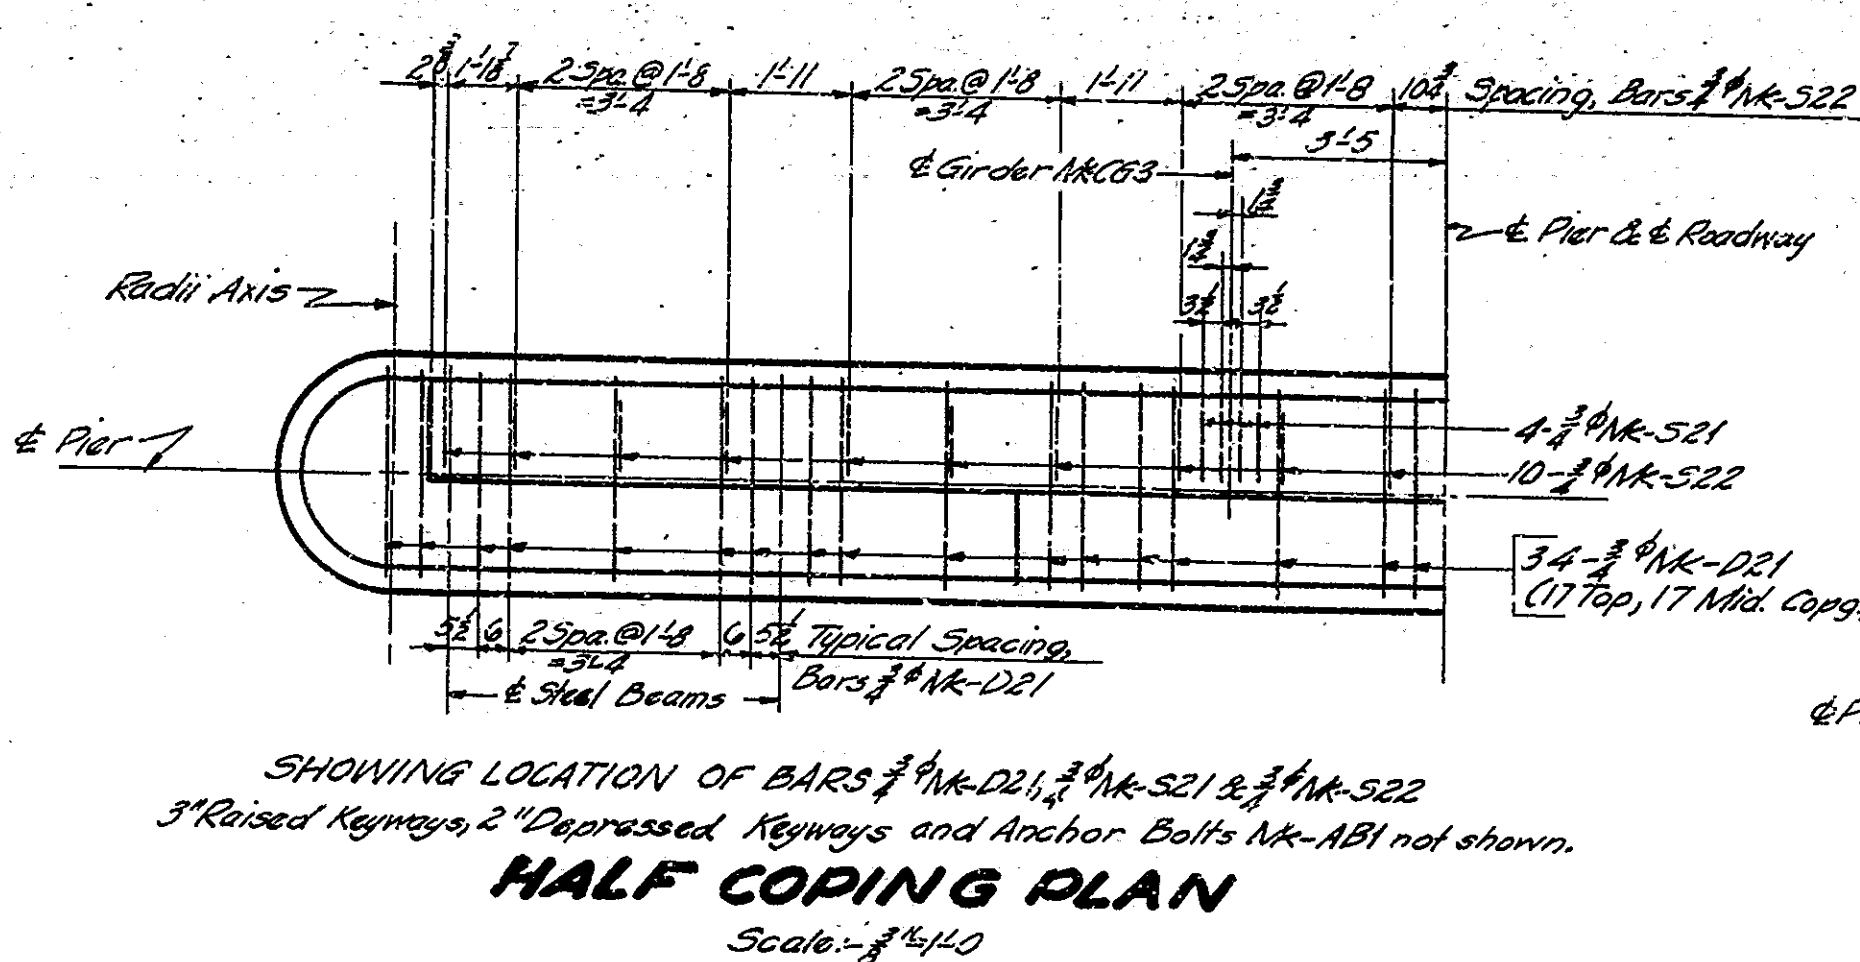 2 3/8 1'-1 7/8 2 Spa. @ 1'-8 1'-11 2 Spa. @ 1'-8 1'-11 2 Spa. @ 1'-8 10 3/4 Spacing, Bars 3/4 ϕ Mk-S22
=3'-4 =3'-4 =3'-4
3'-5
℄ Girder Mk CG3
1 3/4
℄ Pier & ℄ Roadway
1 3/4
Radii Axis
3 1/2 3 1/2
℄ Pier
4-3/4 ϕ Mk-S21
10-3/4 ϕ Mk-S22
34-3/4 ϕ Mk-D21
(17 Top, 17 Mid. Copg.
5 1/2 6 2 Spa. @ 1'-8 6 5 1/2 Typical Spacing,
=3'-4 Bars 3/4 ϕ Mk-D21
℄ Steel Beams
℄ P
SHOWING LOCATION OF BARS 3/4 ϕ Mk-D21, 3/4 ϕ Mk-S21 & 3/4 ϕ Mk-S22
3" Raised Keyways, 2" Depressed Keyways and Anchor Bolts Mk-AB1 not shown.
HALF COPING PLAN
Scale:- 3/8"=1'-0